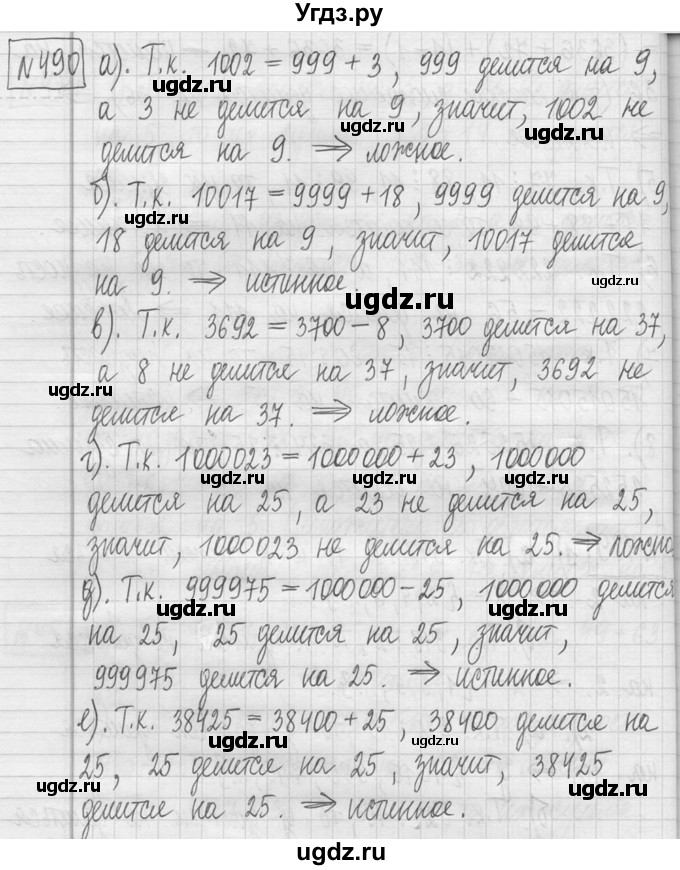 Угдз.ру
№490 а). Т.к. 1002 = 999 + 3, 999 делится на 9,
а 3 не делится на 9, значит, 1002 не
ugdz.ru ugdz.ru
делится на 9. ⟹ ложное.
б). Т.к. 10017 = 9999 + 18, 9999 делится на 9,
ugdz.ru ugdz.ru
18 делится на 9, значит, 10017 делится
на 9. ⟹ истинное.
ugdz.ru
ugdz.ru
в). Т.к. 3692 = 3700 – 8, 3700 делится на 37,
а 8 не делится на 37, значит, 3692 не
ugdz.ru ugdz.ru
делится на 37. ⟹ ложное.
г). Т.к. 1000023 = 1000000 + 23, 1000000
ugdz.ru ugdz.ru
делится на 25, а 23 не делится на 25,
значит, 1000023 не делится на 25. ⟹ ложно
ugdz.ru
д). Т.к. 999975 = 1000000 – 25, 1000000 делится
ugdz.ru ugdz.ru
на 25, 25 делится на 25, значит,
999975 делится на 25. ⟹ истинное.
ugdz.ru
е). Т.к. 38425 = 38400 + 25, 38400 делится на
ugdz.ru ugdz.ru
25, 25 делится на 25, значит, 38425
ugdz.ru ugdz.ru
делится на 25. ⟹ истинное.
ugdz.ru
ugdz.ru